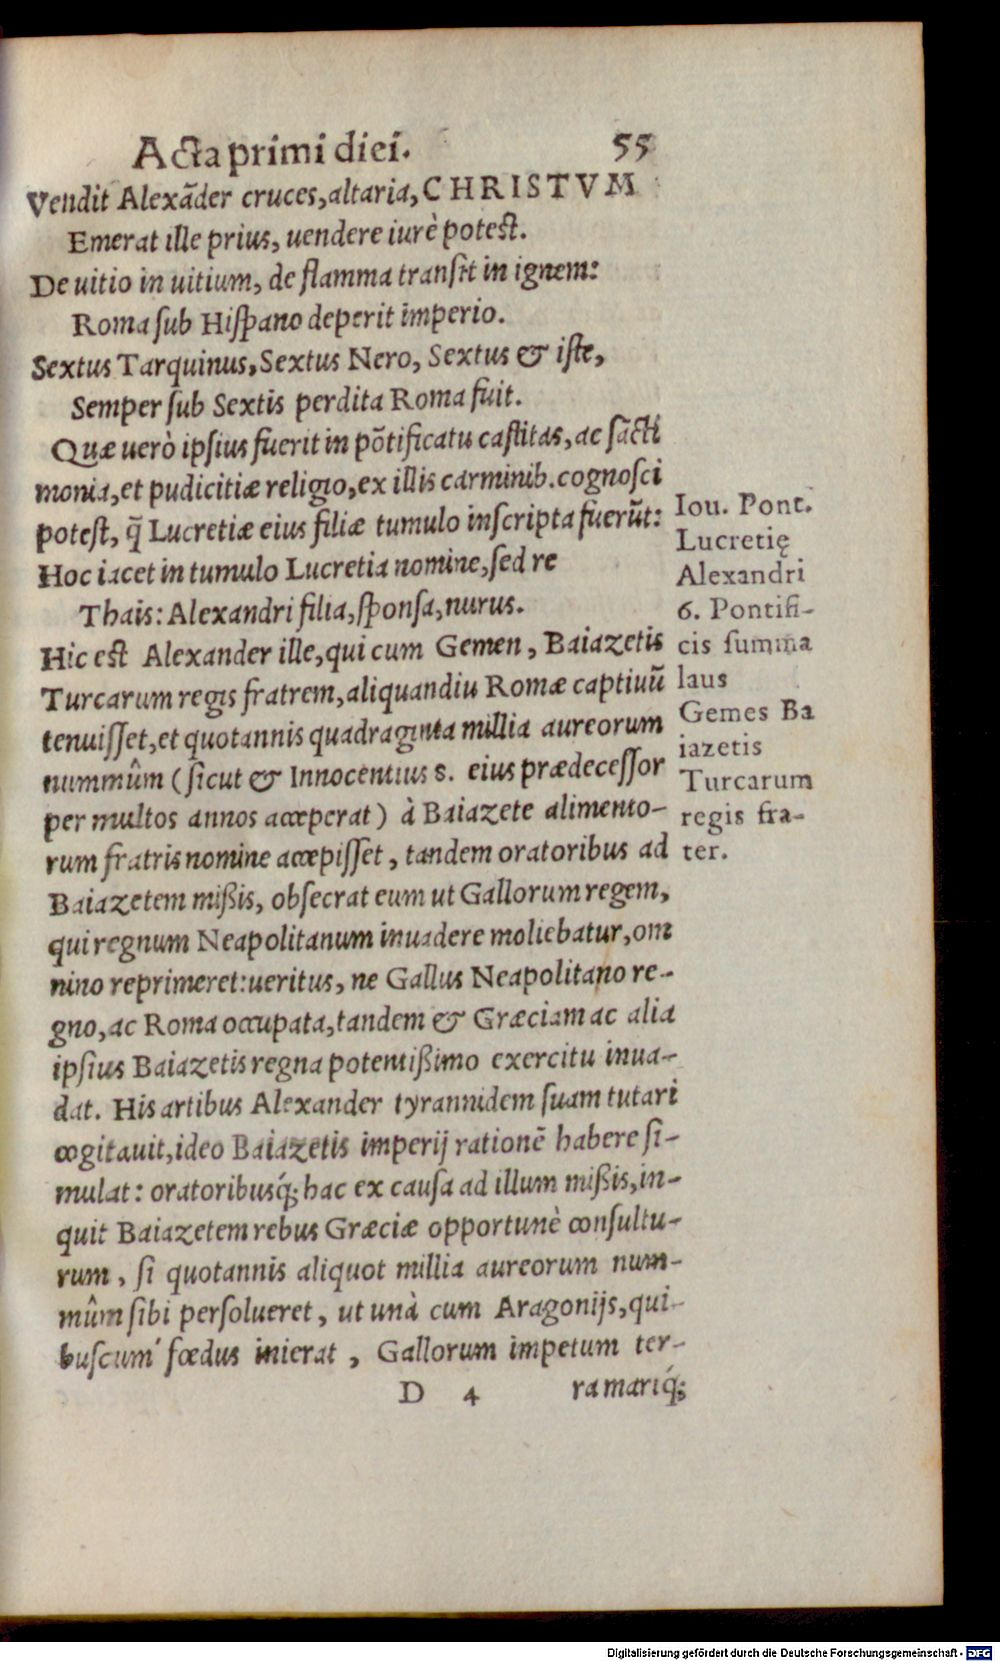 Acta primi diei. 55
Vendit Alexãder cruces, altaria, CHRISTVM
Emerat ille prius, uendere iurè potest.
De uitio in uitium, de flamma transit in ignem:
Roma sub Hispano deperit imperio.
Sextus Tarquinus, Sextus Nero, Sextus & iste,
Semper sub Sextis perdita Roma fuit.
Quæ uerò ipsius fuerit in põtificatu castitas, ac sãcti
monia, et pudicitiæ religio, ex illis carminib. cognosci
potest, q̃ Lucretiæ eius filiæ tumulo inscripta fuerũt:
Hoc iacet in tumulo Lucretia nomine, sed re
Thais: Alexandri filia, sponsa, nurus.
Hic est Alexander ille, qui cum Gemen, Baiazetis
Turcarum regis fratrem, aliquandiu Romæ captiuũ
tenuisset, et quotannis quadraginta millia aureorum
nummûm (sicut & Innocentius 8. eius prædecessor
per multos annos acceperat) à Baiazete alimento-
rum fratris nomine accepisset, tandem oratoribus ad
Baiazetem mißis, obsecrat eum ut Gallorum regem,
qui regnum Neapolitanum inuadere moliebatur, om
nino reprimeret: ueritus, ne Gallus Neapolitano re-
gno, ac Roma occupata, tandem & Græciam ac alia
ipsius Baiazetis regna potentißimo exercitu inua-
dat. His artibus Alexander tyrannidem suam tutari
cogitauit, ideo Baiazetis imperij rationẽ habere si-
mulat: oratoribusq́; hac ex causa ad illum mißis, in-
quit Baiazetem rebus Græciæ opportunè consultu-
rum, si quotannis aliquot millia aureorum num-
mûm sibi persolueret, ut unà cum Aragonijs, qui-
buscum fœdus inierat, Gallorum impetum ter-
D 4 ra mariq́;
Iou. Pont.
Lucretię
Alexandri
6. Pontifi-
cis summa
laus
Gemes Ba
iazetis
Turcarum
regis fra-
ter.
Digitalisierung gefördert durch die Deutsche Forschungsgemeinschaft - DFG